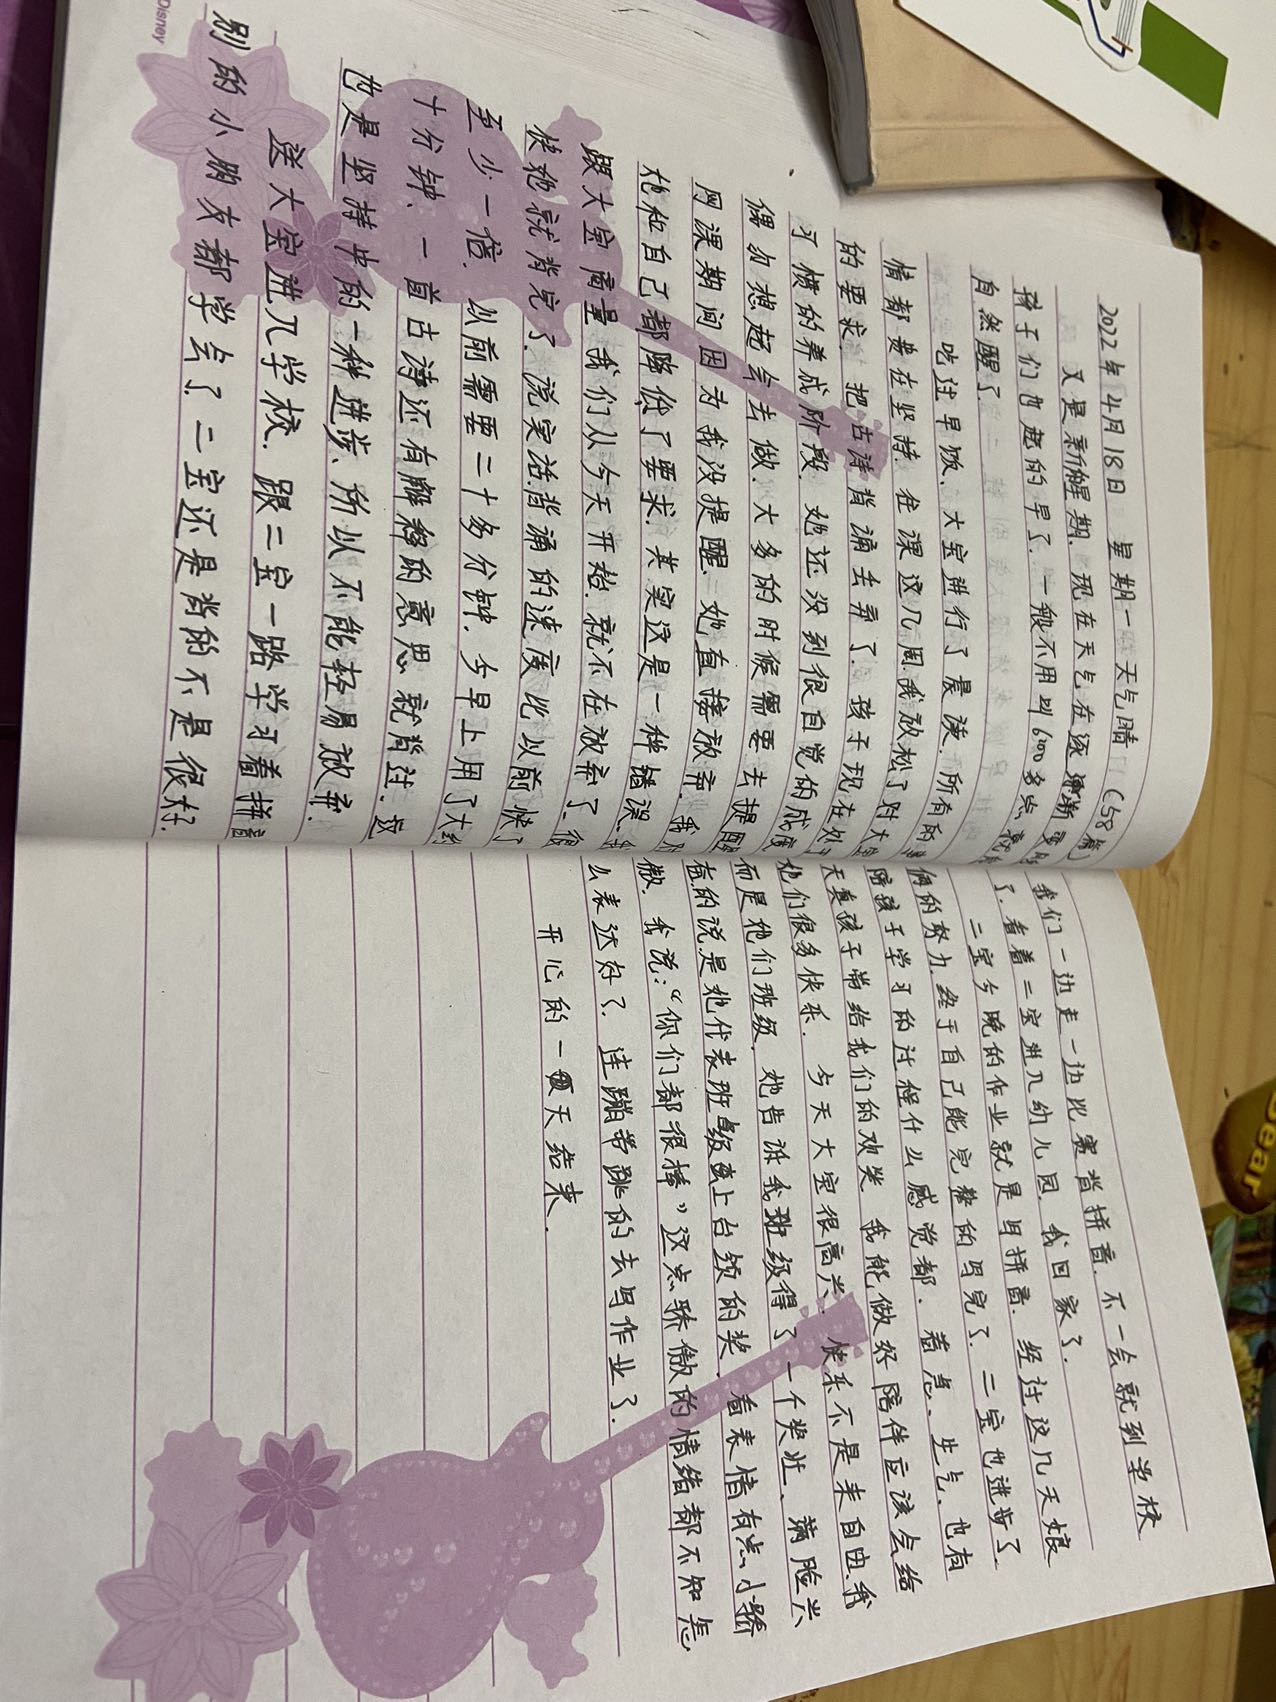 2022年4月18日 星期一 天气晴 (58篇)
又是新星期、现在天气在逐渐
孩子们也起的早了、一般不用叫6:00多点
自然醒了
吃过早饭、大宝进行了晨读、所有的
情都贵在坚持、在课这几周我放松了对大
的要求、把古诗背诵丢弃了、孩子现在处
习惯的养成阶段、她还没到很自觉的成度
偶尔想起会去做、大多的时候需要去提醒
网课期间因为我没提醒、她直接放弃、我
她和自己都降低了要求、其实这是一种错误、
跟大宝商量我们从今天开始、就不在放弃了、很
快她就背完了、说实话背诵的速度比以前快了
至少一倍、以前需要二十多分钟、今早上用了大约
十分钟、一首古诗还有解释的意思就背过、这
也是坚持中的一种进步、所以不能轻易放弃、
送大宝进入学校、跟二宝一路学习着拼音
别的小朋友都学会了、二宝还是背的不是很好、
我们一边走一边比赛背拼音、不一会就到学校
了、看着二宝进入幼儿园、我回家了、
二宝今晚的作业就是写拼音、经过这几天娘
俩的努力、终于自己能完整的写完了、二宝也进步了
陪孩子学习的过程什么感觉都、着急、生气、也有
天真孩子带给我们的欢笑、我能做好陪伴应该会给
他们很多快乐、今天大宝很高兴、快乐不是来自由、我
而是他们班级、她告诉我班级得了一个奖状、满脸兴
奋的说是她代表班级上台领的奖、看表情有点小骄
傲、我说:“你们都很棒”这点骄傲的情绪都不知怎
么表达好了、连蹦带跳的去写作业了、
开心的一天结束、
Disney
Bear